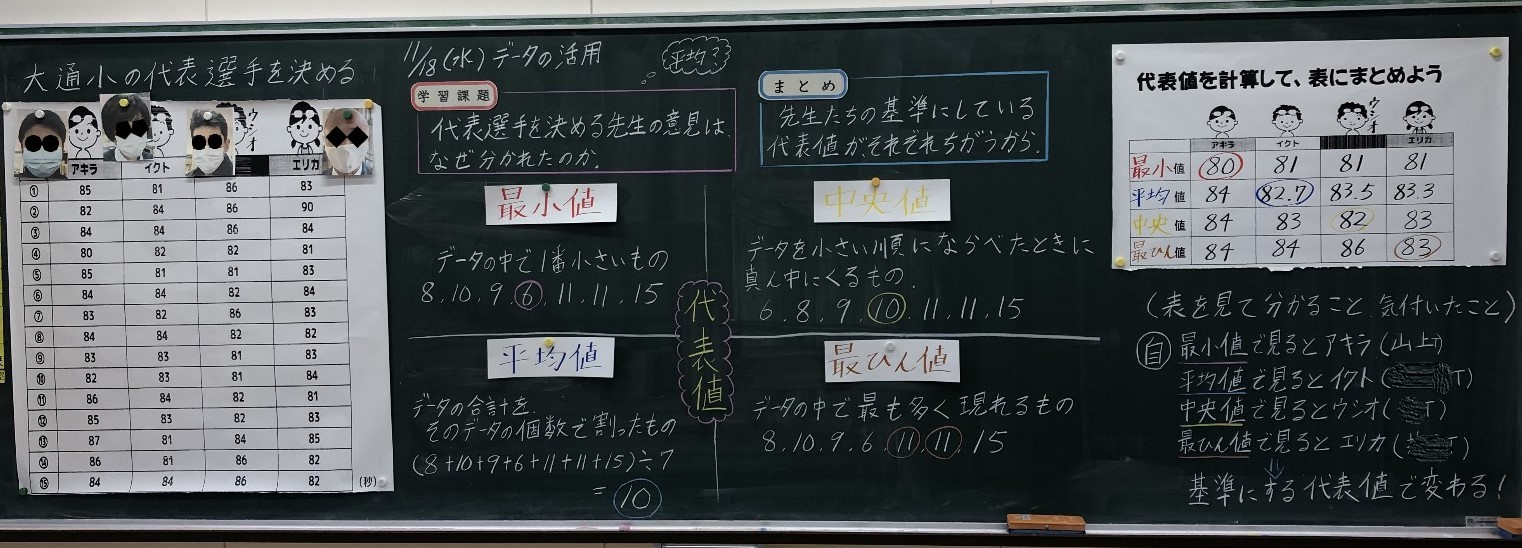 大通小の代表選手を決める
ウシオ
アキラ イクト エリカ
① 85 81 86 83
② 82 84 86 90
③ 84 84 86 84
④ 80 82 82 81
⑤ 85 81 81 83
⑥ 84 84 82 84
⑦ 83 82 86 83
⑧ 84 84 82 82
⑨ 83 83 81 83
⑩ 82 83 81 84
⑪ 86 84 82 81
⑫ 85 83 82 83
⑬ 87 81 84 85
⑭ 86 81 86 82
⑮ 84 84 86 82
(秒)
11/18(水) データの活用
平均?
学習課題
代表選手を決める先生の意見は、
なぜ分かれたのか。
まとめ
先生たちの基準にしている
代表値が、それぞれちがうから。
最小値
データの中で1番小さいもの
8.10.9.6.11.11.15
中央値
データを小さい順にならべたときに
真ん中にくるもの.
6.8.9.10.11.11.15
代表値
平均値
データの合計を
そのデータの個数で割ったもの
(8+10+9+6+11+11+15)÷7
=10
最ひん値
データの中で最も多く現れるもの
8.10.9.6.11.11.15
代表値を計算して、表にまとめよう
ウシオ
アキラ イクト エリカ
最小値 80 81 81 81
平均値 84 82.7 83.5 83.3
中央値 84 83 82 83
最ひん値 84 84 86 83
(表を見て分かること、気付いたこと)
自 最小値で見るとアキラ(山上T)
平均値で見るとイクト( T)
中央値で見るとウシオ( T)
最ひん値で見るとエリカ( T)
基準にする代表値で変わる!